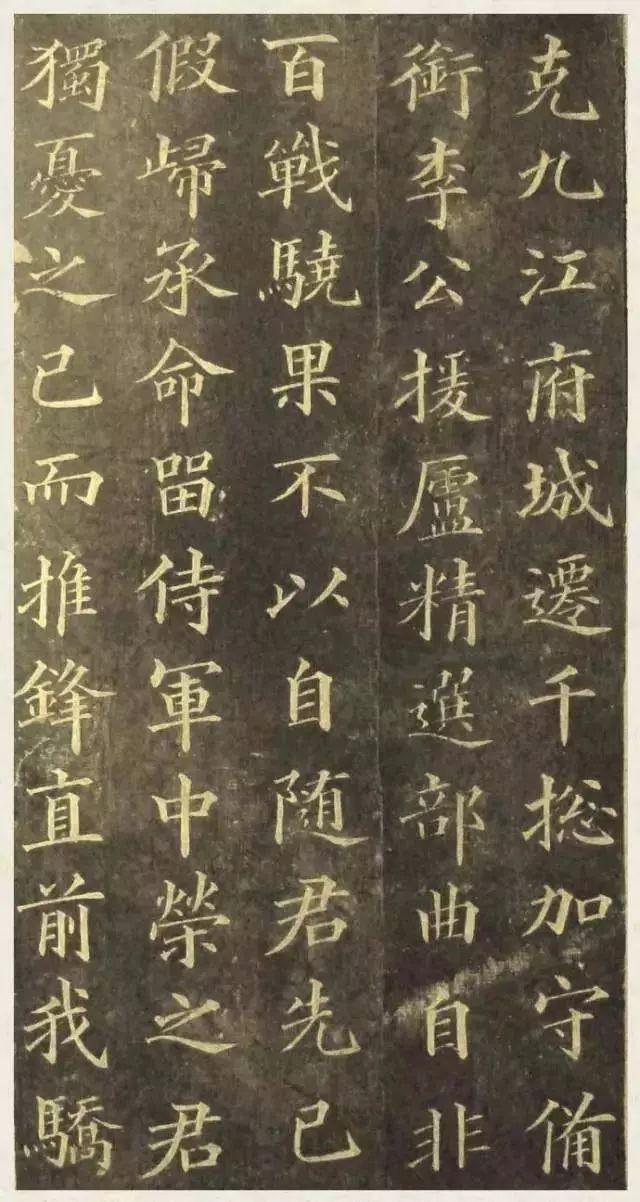 克九江府城遷千揔加守俻
銜李公援廬精選部曲自非
百戰驍果不以自随君先已
假歸承命留侍軍中榮之君
獨憂之已而推鋒直前我驕